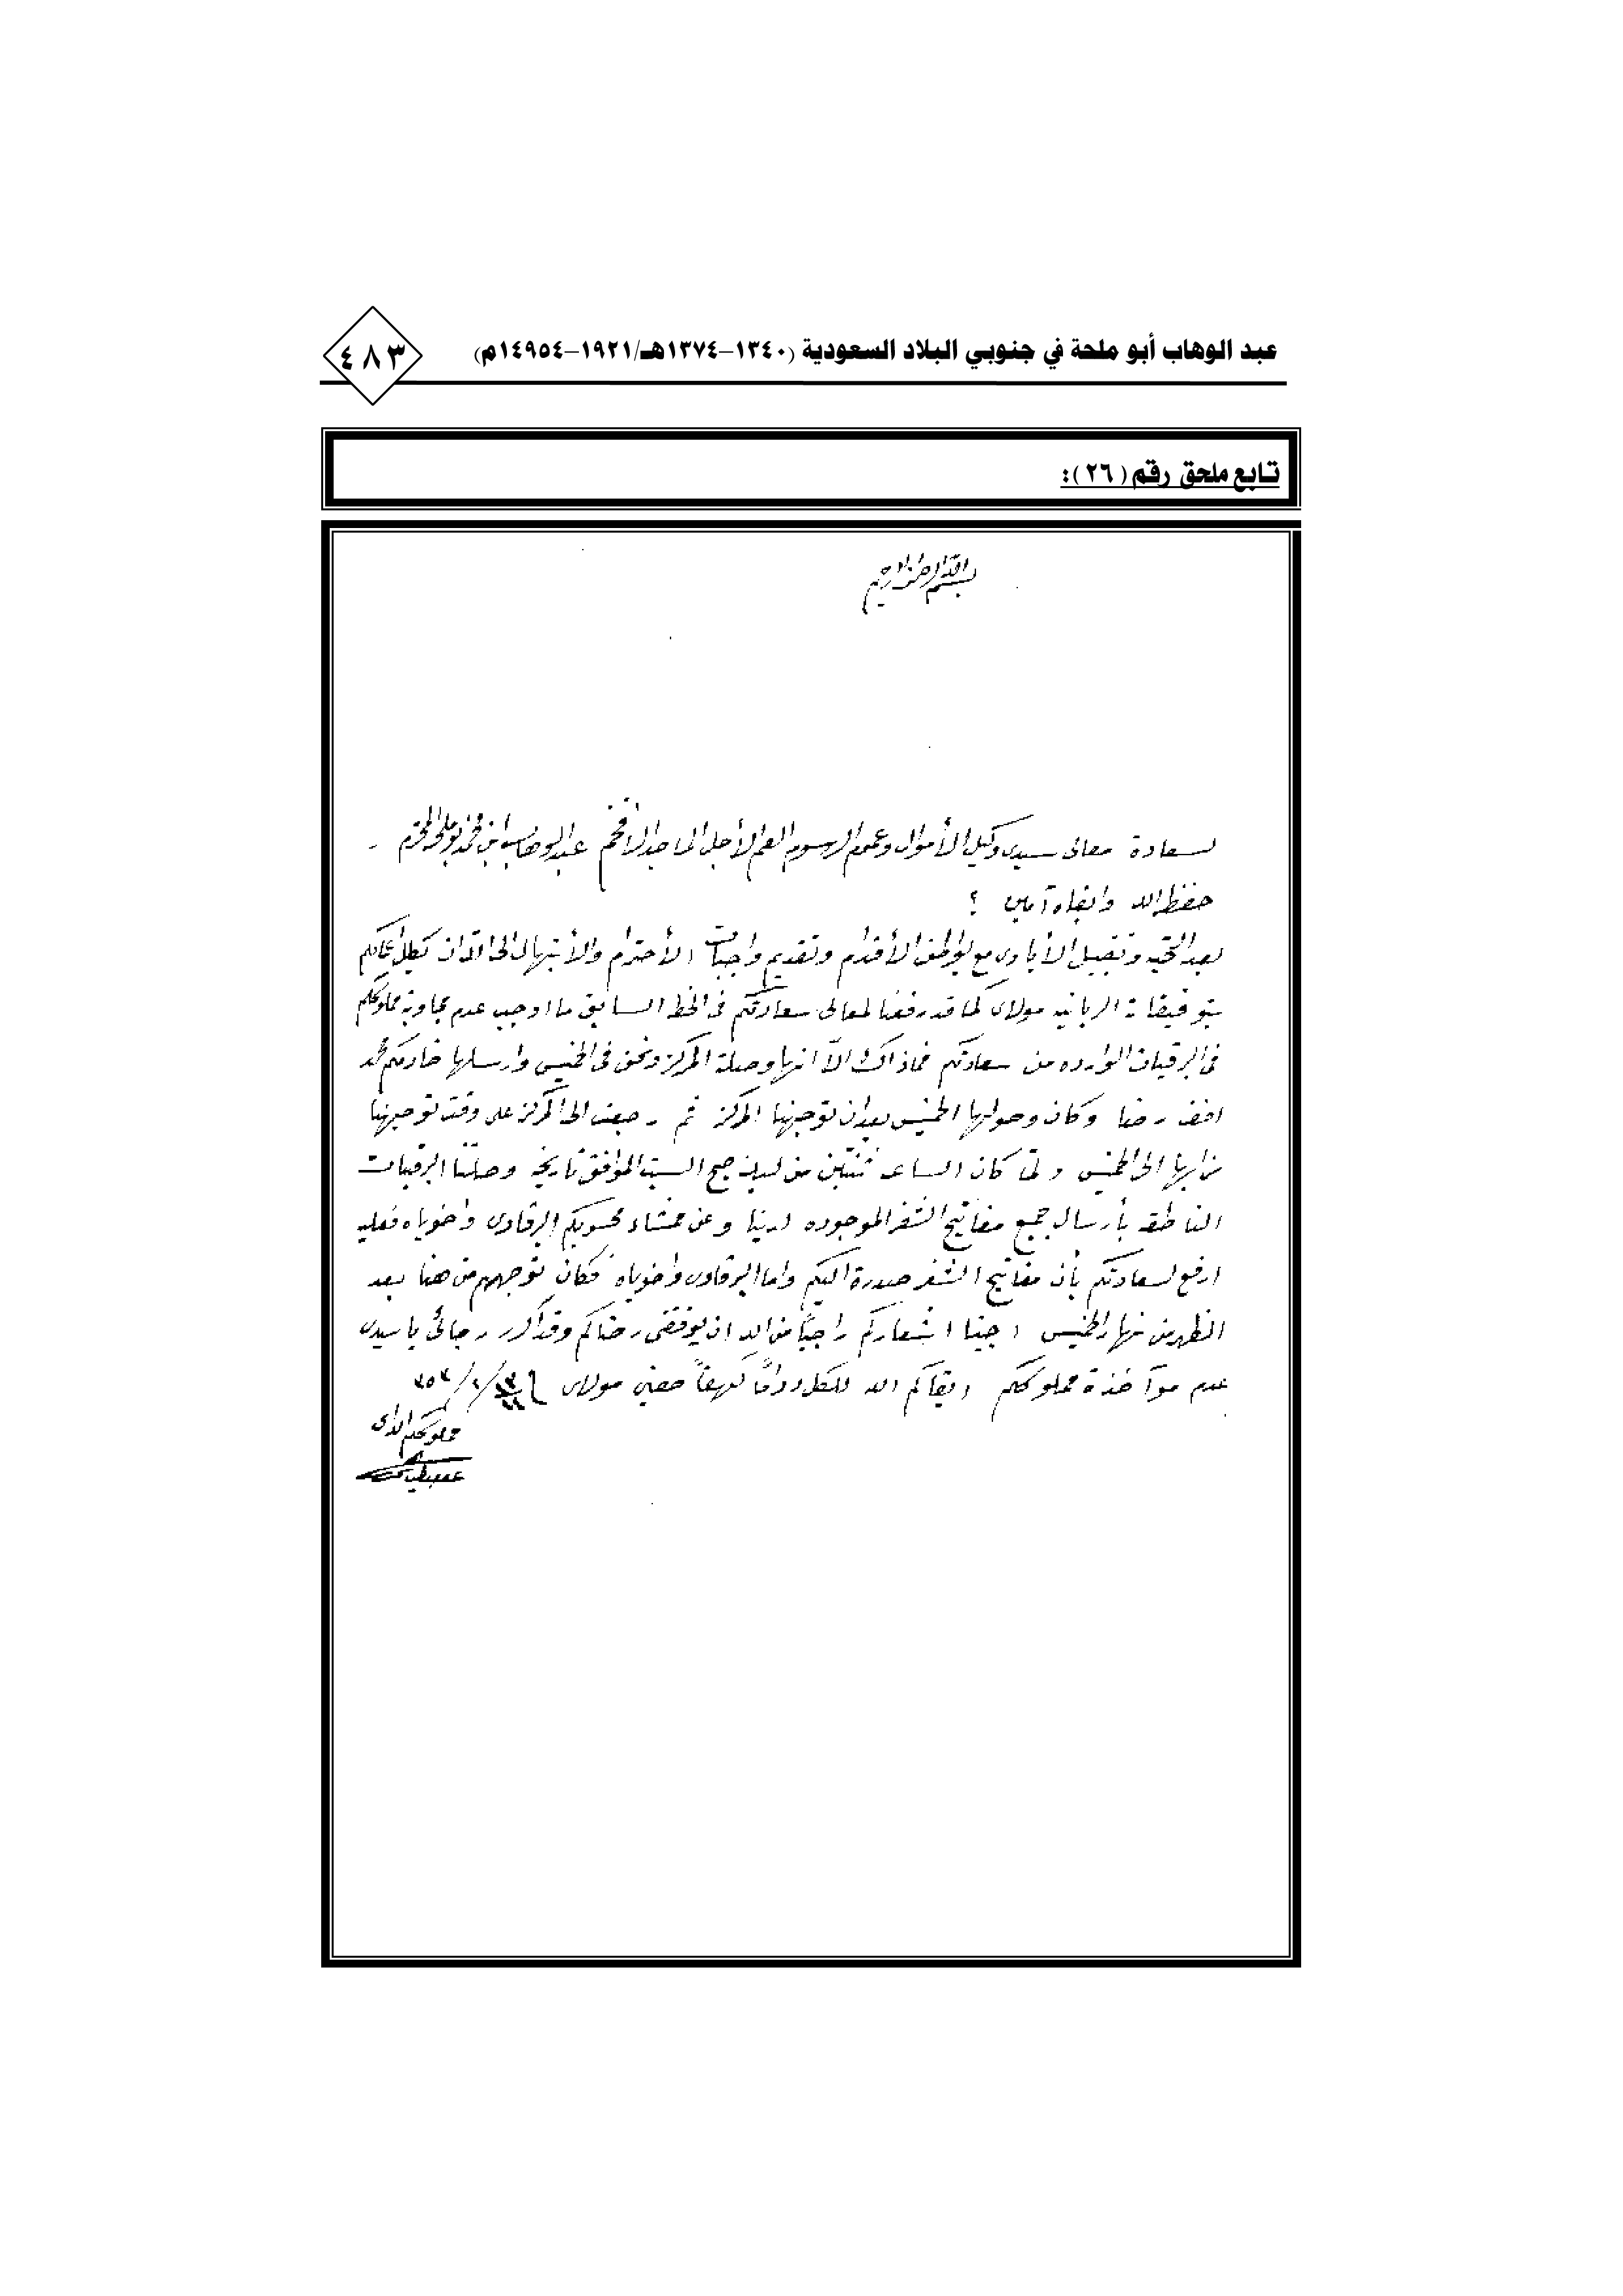 عبد الوهاب أبو ملحة في جنوبي البلاد السعودية (١٣٤٠-١٣٧٤هـ/١٩٢١-١٤٩٥٤م)
٤٨٣
تابع ملحق رقم (٢٦):
بسم الله الرحمن الرحيم
لسعادة معالى سيدى وكيل الأموال وعموم الرسوم العم الأجل الماجد الأفخم عبد الوهاب ابن محمد بو ملحه المحترم -
حفظه الله وابقاه آمين ؟
بعد التحيه وتقبيل الأيادى مع لواطى الأقدام وتقديم واجبات الأحترام والأبتهال الى الله ان يكلل اعمالكم
بتوفيقاته الربانيه مولاى كما قد رفعنا لمعالى سعادتكم فى الخط السابق ما اوجب عدم مجاوبة مملوككم
فى البرقيات الوارده من سعادتكم فماذاك الاّ انها وصلة المركز ونحن فى الخميس وارسلها خادمكم محمد
رضا وكان وصولها الخميس بعد ان توجهنا المركز ثم رجعت الى المركز على وقت توجهنا
الى الخميس ولما كان الساعه ثنتين من صبح السبت الموافق تاريخه وصلتنا البرقيات
الناطقه بأرسال جميع مفاتيح الشفر الموجوده لدينا وعن ممشاء محسوبكم البرقاوى واخوياه فعليه
ارفع لسعادتكم بأن مفاتيح الشفر صدرة اليكم واما البرقاوى واخوياه فكان توجههم من هنا بعد
الظهر من نهار الخميس اجبنا اشعاركم راجيًا من الله ان يوفقنى رضاكم وقد اكرر رجائى يا سيدى
عدم مؤآخذة مملوككم ابقاكم الله للكل دوامًا كهفًا حصين مولاى
مملوككم الداى